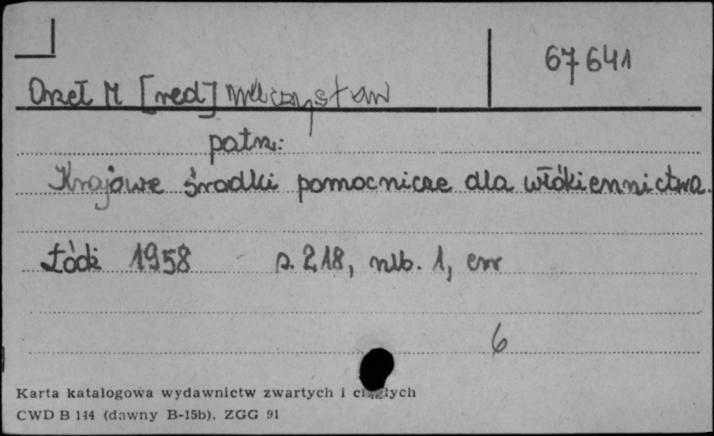 67641
Orzeł M [red] Mieczysław
patrz:
Krajowe środki pomocnicze dla włókiennictwa.
Łódź 1958 s. 218, nlb. 1, err
6
Karta katalogowa wydawnictw zwartych i ciągłych
CWD B 144 (dawny B-15b). ZGG 91